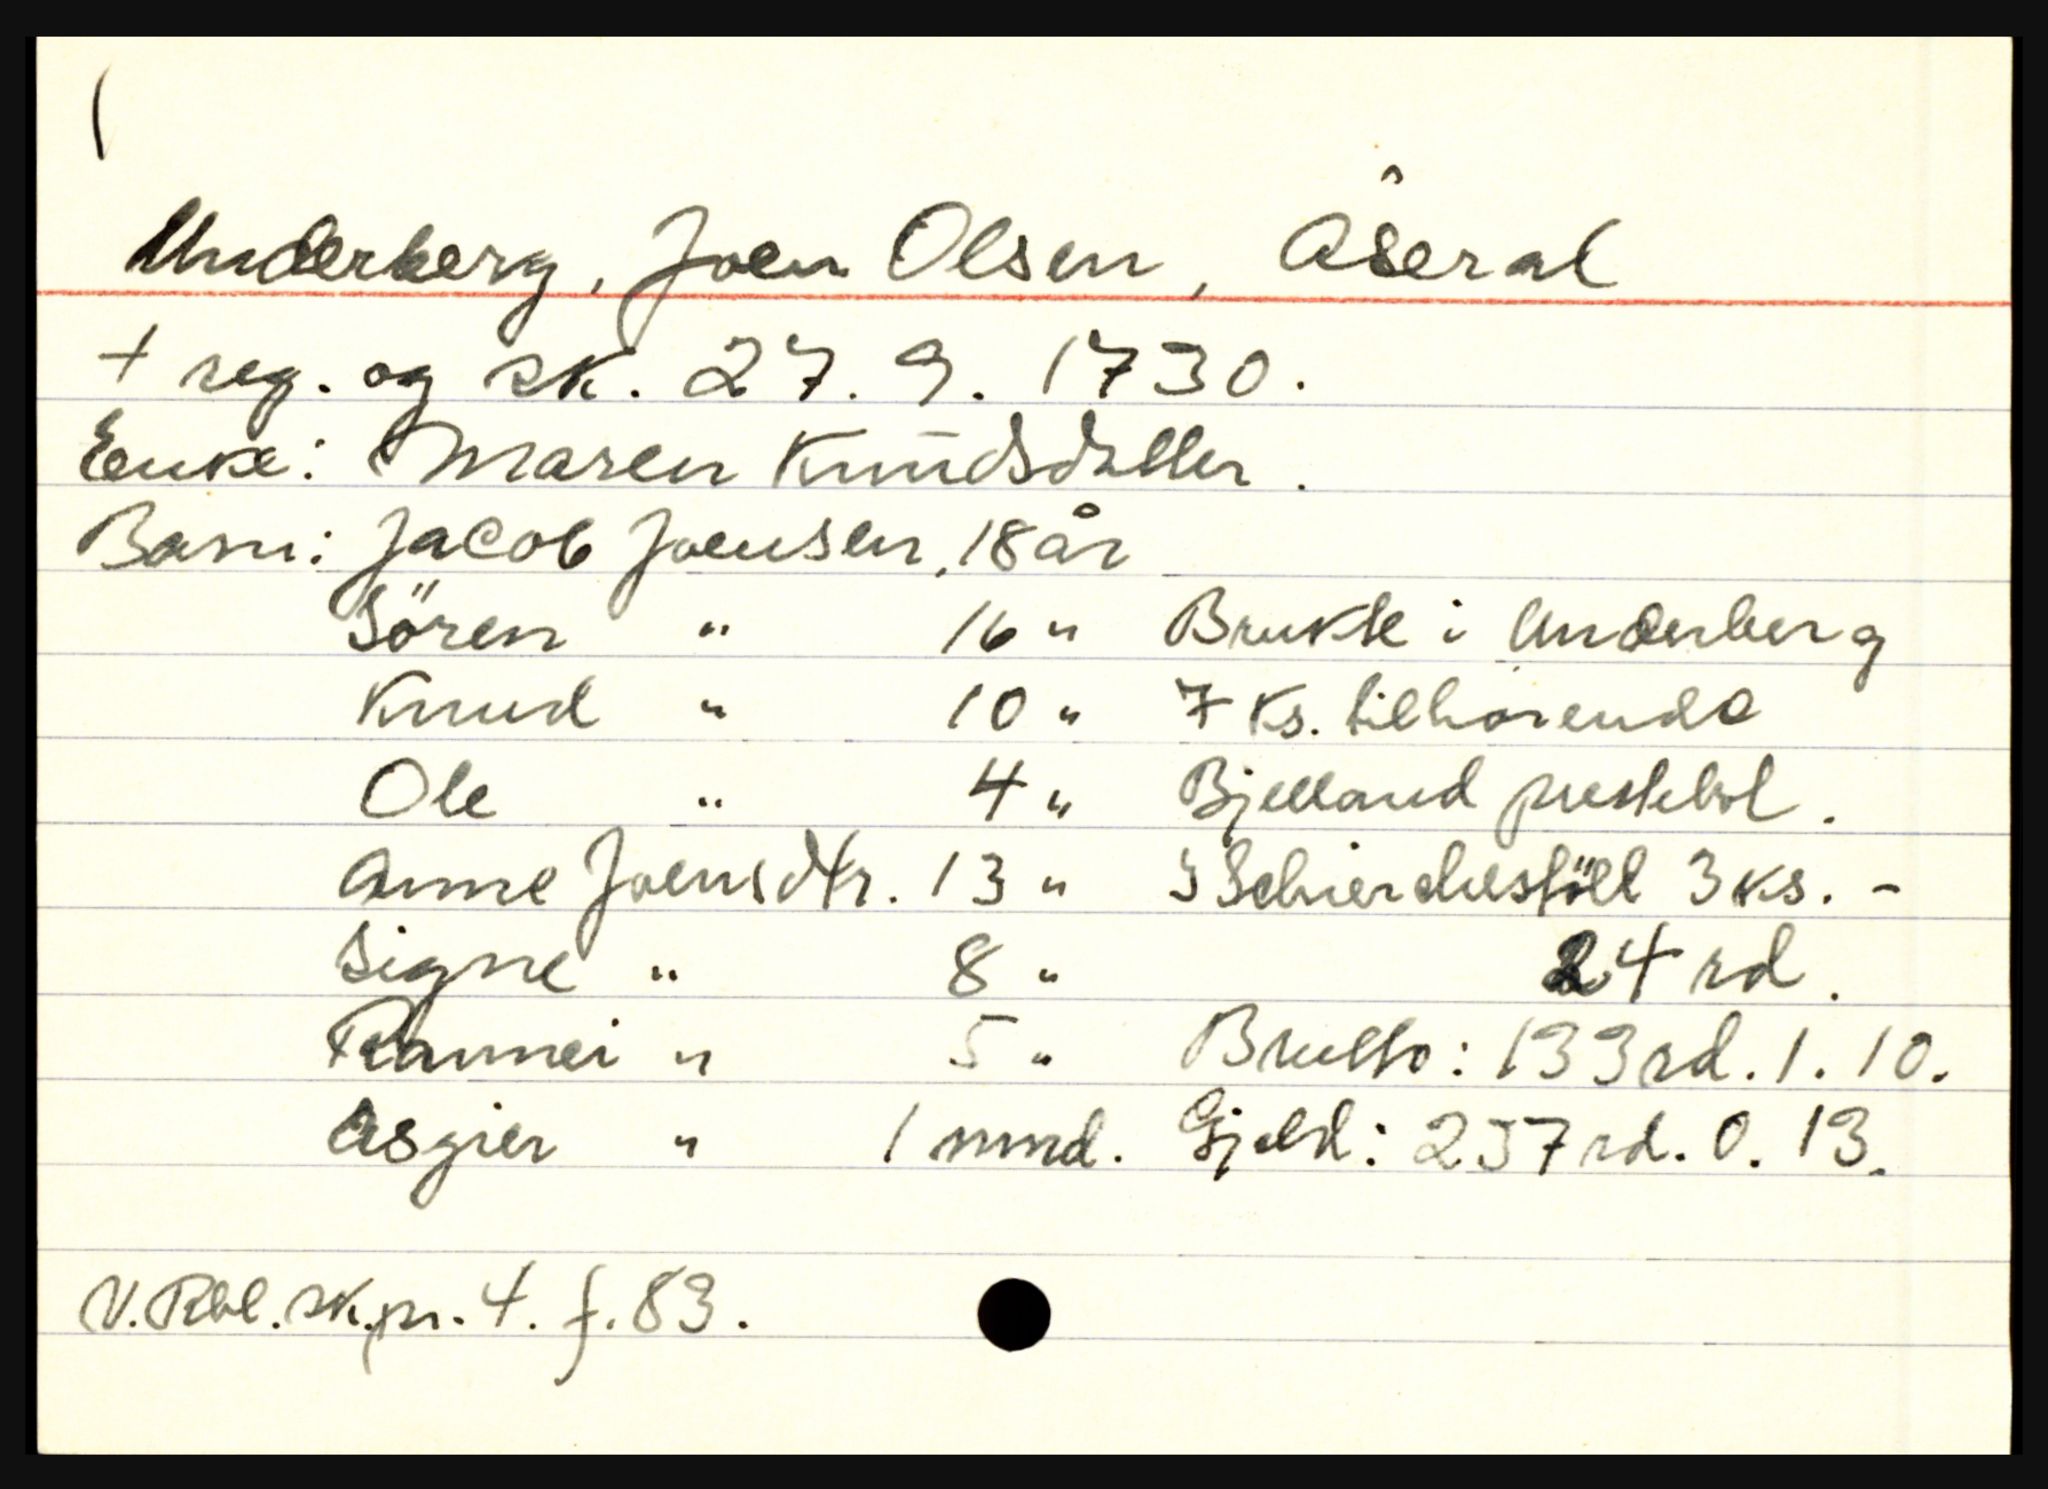 Underberg, Joen Olsen, Åseral
+ reg. og sk. 27. 9. 1730.
Enke: Maren Knudsdatter.
Barn: Jacob Joensen, 18 år
Sören " 16 " Brukte i Underberg
Knud " 10 " 7 ks. tilhørende
Ole " 4 " Bjelland prestebol.
Anne Joensdtr. 13 " I 3 ks. -
Signe " 8 " 24 rd.
Rannei " 5 " Brutto: 133 rd. 1. 10.
Asgier " 1 mnd. Gjeld: 257 rd. 0. 13.
V. Rbl. sk.pr. 4. f. 83.